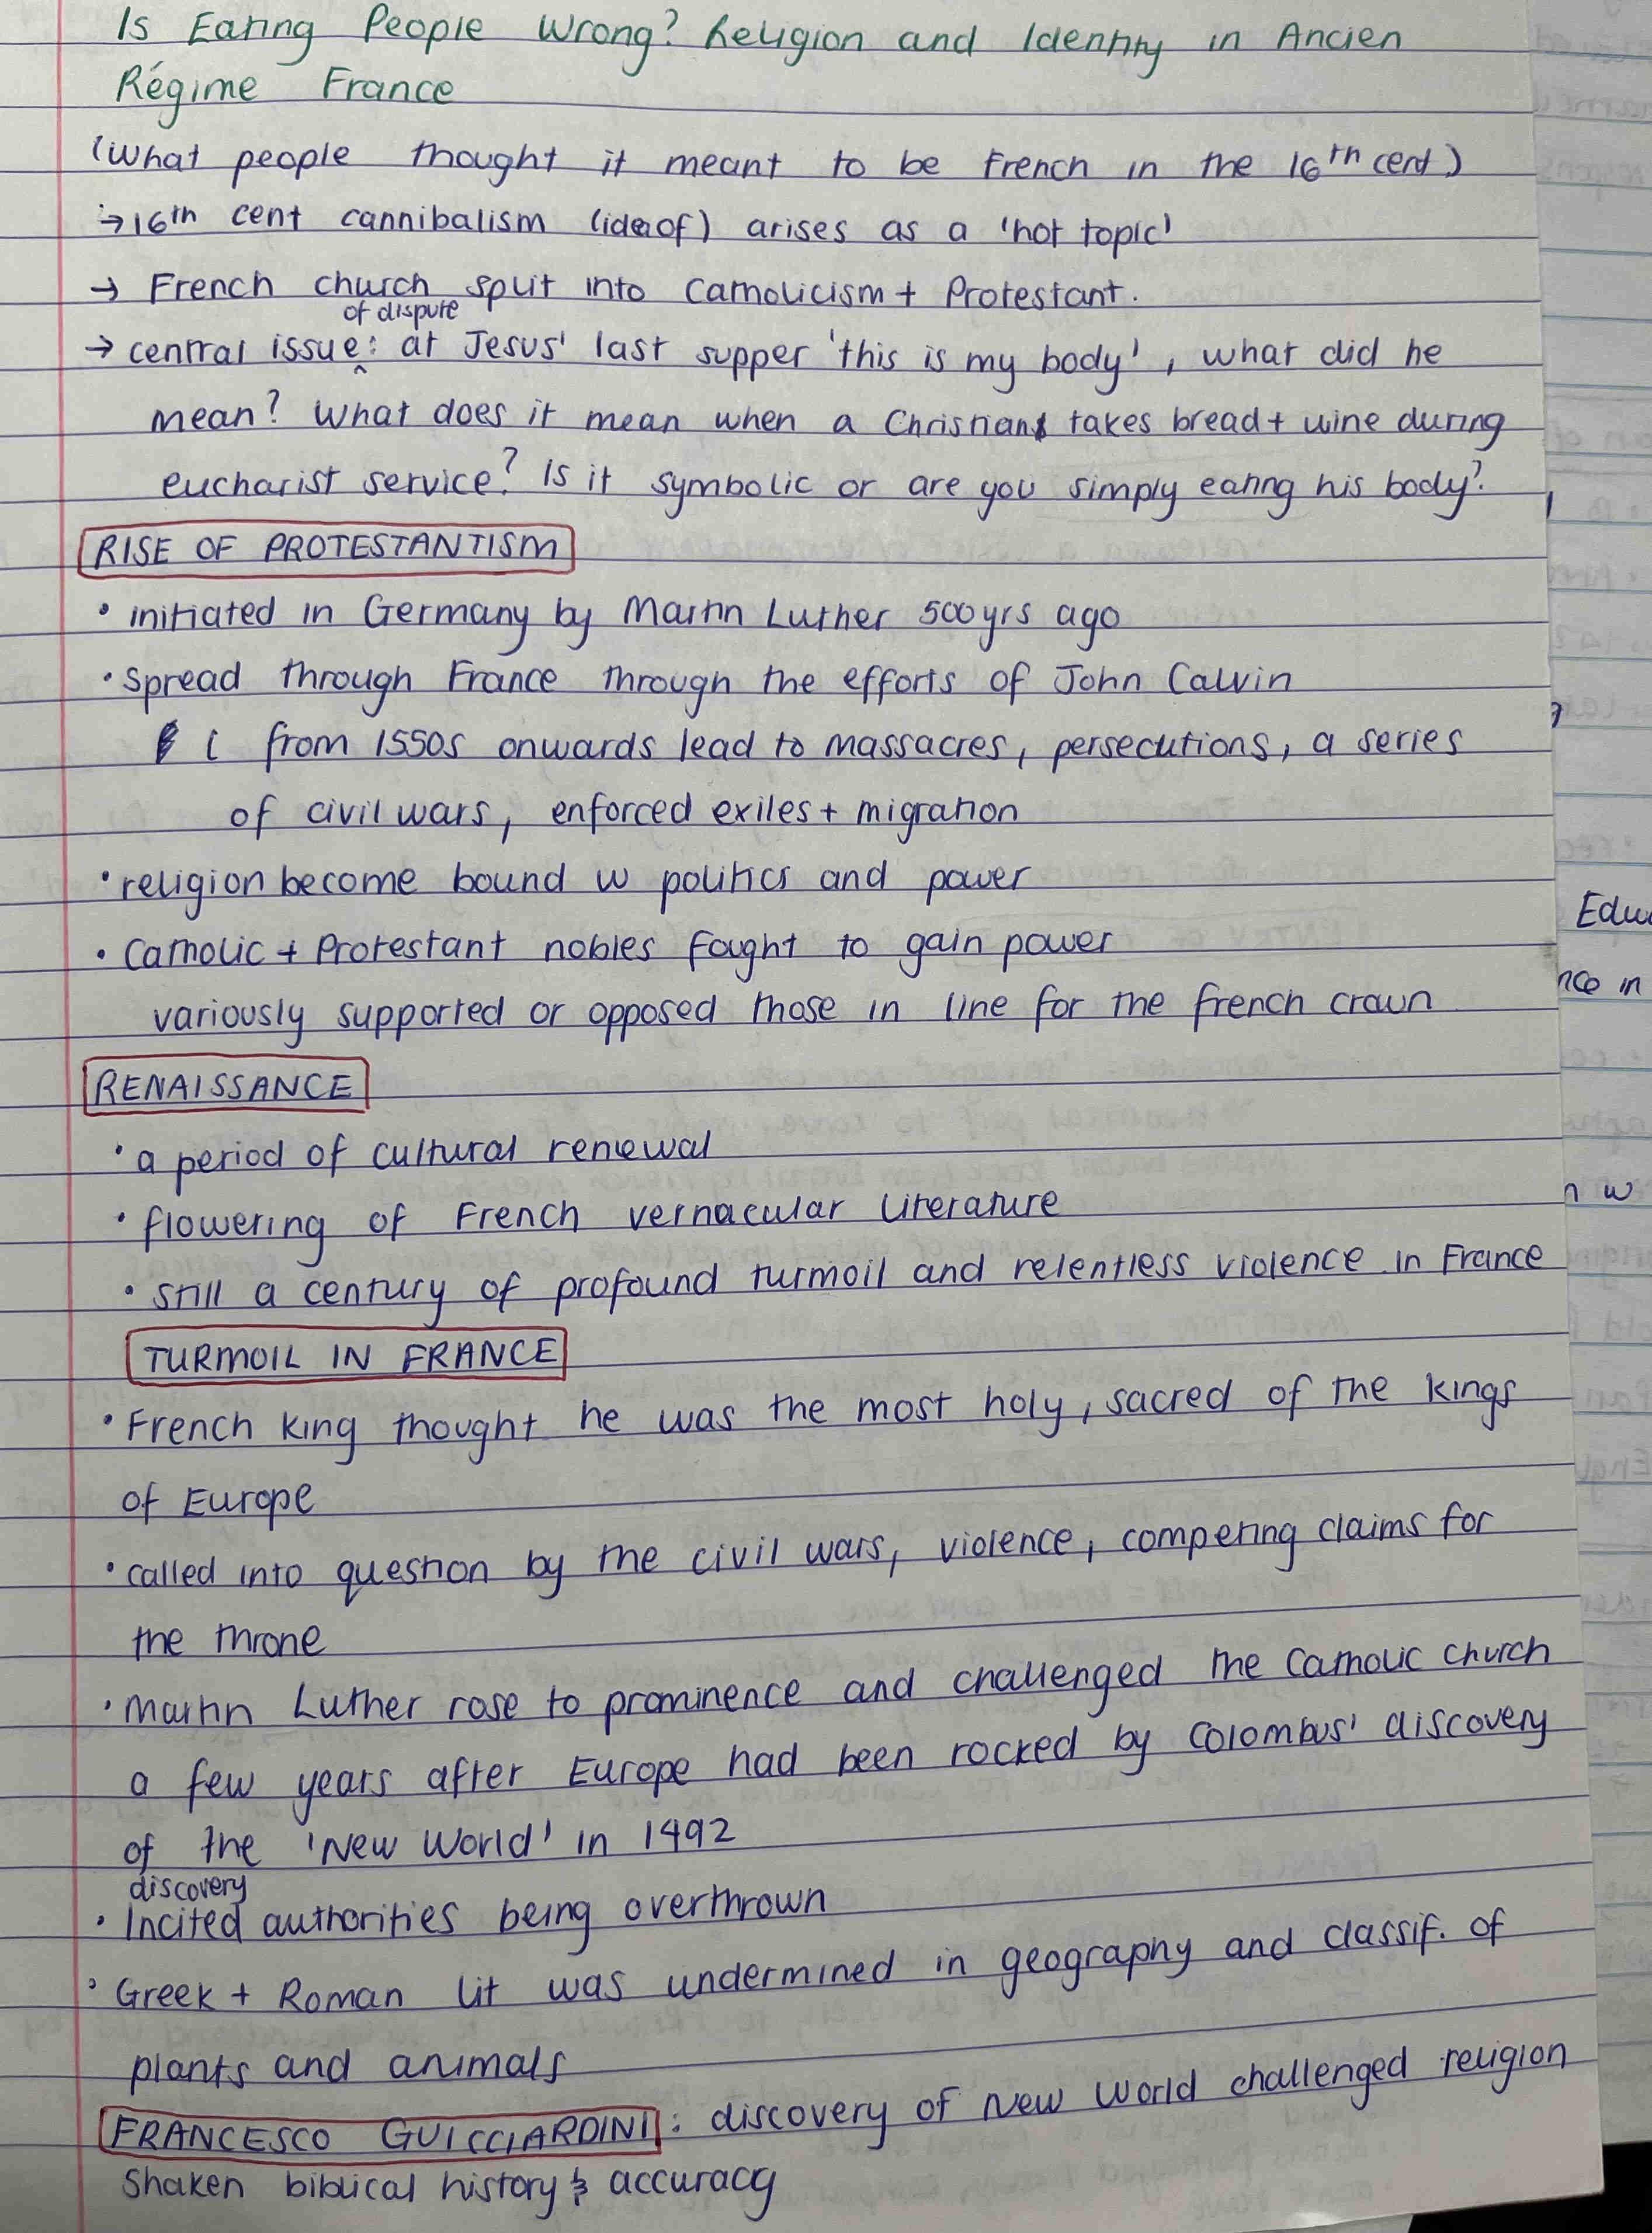 Is Eating People Wrong? Religion and Identity in Ancien
Régime France
(What people thought it meant to be French in the 16th cent)
→ 16th cent cannibalism (idea of) arises as a 'hot topic'
→ French church split into Catholicism + Protestant.
of dispute
→ central issue: at Jesus' last supper 'this is my body', what did he
mean? What does it mean when a Christian takes bread + wine during
eucharist service? Is it symbolic or are you simply eating his body?
RISE OF PROTESTANTISM
• initiated in Germany by Martin Luther 500yrs ago
• Spread through France through the efforts of John Calvin
from 1550s onwards lead to massacres, persecutions, a series
of civil wars, enforced exiles + migration
• religion become bound w politics and power
• Catholic + Protestant nobles fought to gain power
variously supported or opposed those in line for the french crown
RENAISSANCE
• a period of cultural renewal
• flowering of French vernacular literature
• still a century of profound turmoil and relentless violence in France
TURMOIL IN FRANCE
• French king thought he was the most holy, sacred of the kings
of Europe
• called into question by the civil wars, violence, competing claims for
the throne
• Martin Luther rose to prominence and challenged the Catholic church
a few years after Europe had been rocked by Colombus' discovery
of the 'New World' in 1492
discovery
• Incited authorities being overthrown
• Greek + Roman lit was undermined in geography and classif. of
plants and animals
FRANCESCO GUICCIARDINI: discovery of New World challenged religion
Shaken biblical history & accuracy